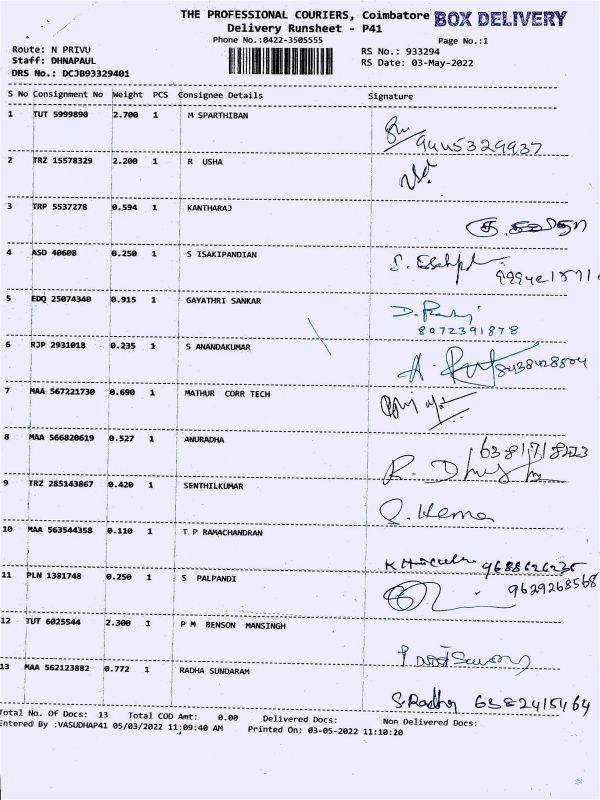 THE PROFESSIONAL COURIERS, Coimbatore BOX DELIVERY
Delivery Runsheet - P41
Phone No.:0422-3505555 Page No.:1
Route: N PRIVU RS No.: 933294
Staff: DHNAPAUL RS Date: 03-May-2022
DRS No.: DCJB93329401
S No Consignment No Weight PCS Consignee Details Signature
1 TUT 5999890 2.700 1 M SPARTHIBAN
9445329937
2 TRZ 15578329 2.200 1 R USHA
3 TRP 5537278 0.594 1 KANTHARAJ
4 ASD 40608 0.250 1 S ISAKIPANDIAN
5 EDQ 25074340 0.915 1 GAYATHRI SANKAR
8072391878
6 RJP 2931018 0.235 1 S ANANDAKUMAR
8438428804
7 MAA 567221730 0.690 1 MATHUR CORR TECH
8 MAA 566820619 0.527 1 ANURADHA
9 TRZ 285143867 0.420 1 SENTHILKUMAR
Hema
10 MAA 563544358 0.110 1 T P RAMACHANDRAN
11 PLN 1381748 0.250 1 S PALPANDI
9629268568
12 TUT 6025544 2.300 1 P M BENSON MANSINGH
13 MAA 562123882 0.772 1 RADHA SUNDARAM
S. Radha 6382415464
Total No. Of Docs: 13 Total COD Amt: 0.00 Delivered Docs: Non Delivered Docs:
Entered By :VASUDHAP41 05/03/2022 11:09:40 AM Printed On: 03-05-2022 11:10:20